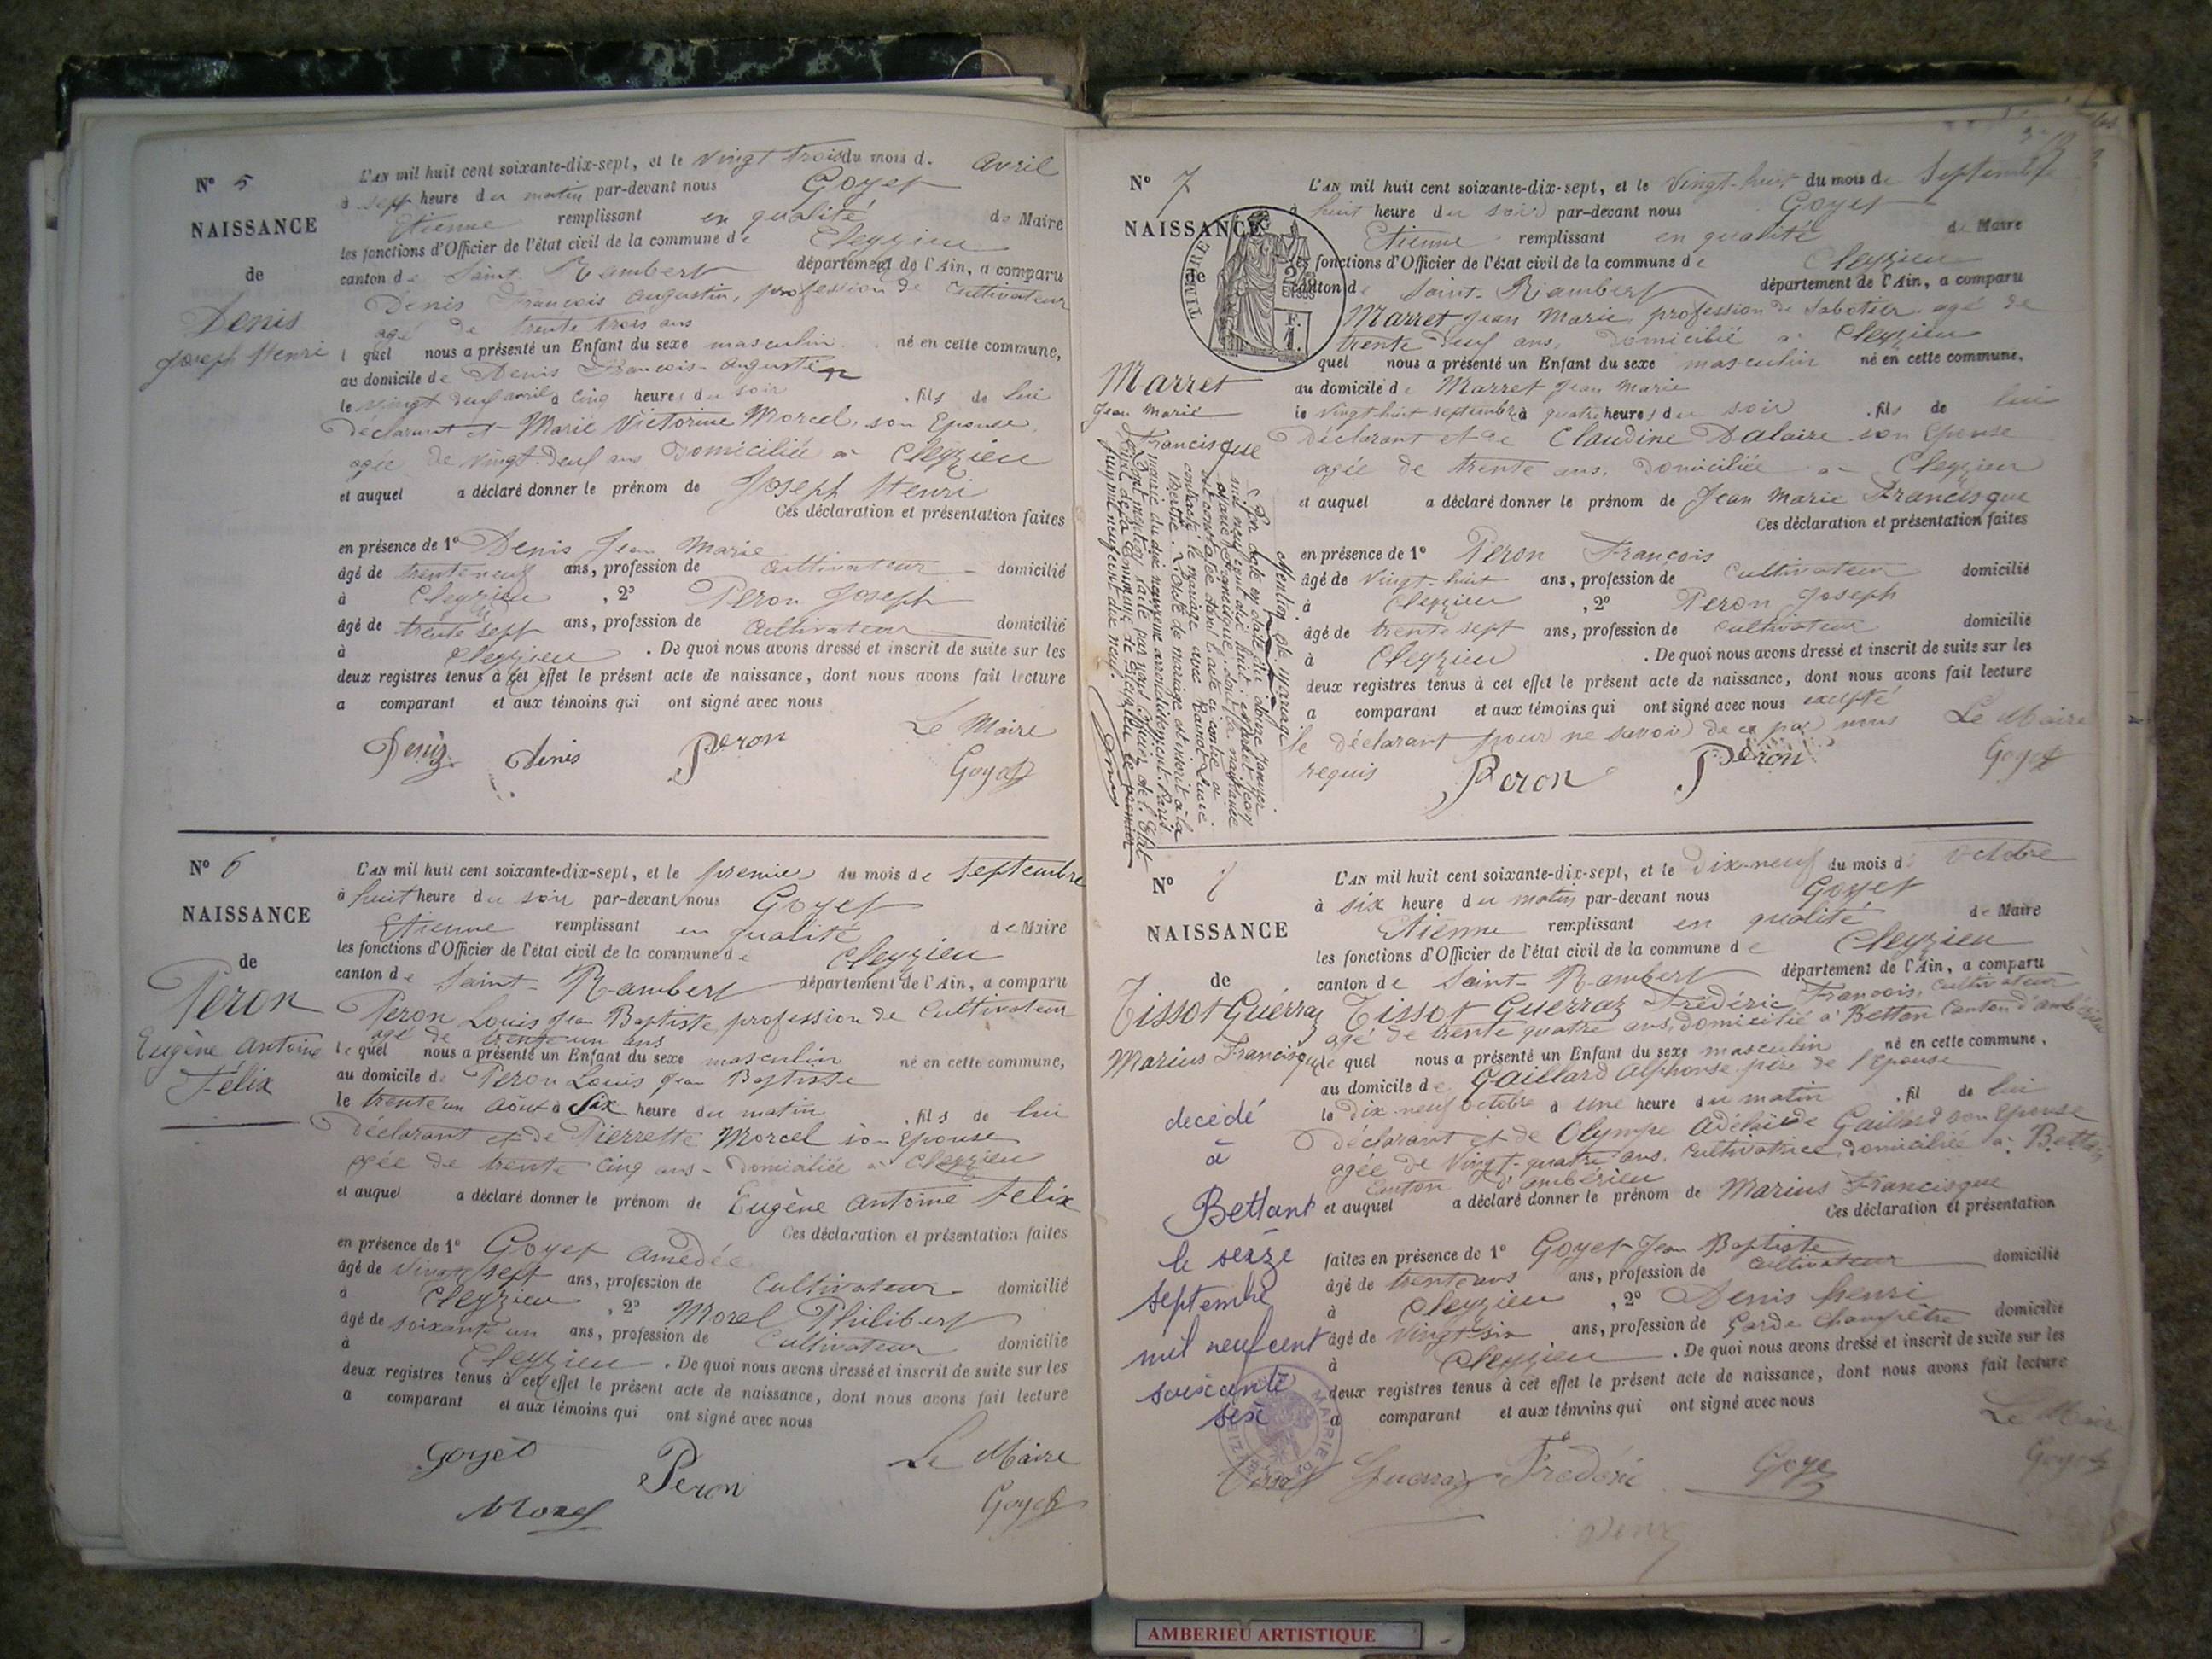 N° 5
NAISSANCE
de
Denis
Joseph Henri
L'AN mil huit cent soixante-dix-sept, et le vingt trois du mois d. avril
à sept heure du matin par-devant nous Goyet
Etienne remplissant en qualité de Maire
les fonctions d'Officier de l'état civil de la commune de Cleyzieu
canton de Saint-Rambert département de l'Ain, a comparu
Denis François Augustin, profession de Cultivateur
agé de trente trois ans
lequel nous a présenté un Enfant du sexe masculin né en cette commune,
au domicile de Denis François-Augustin
le vingt deux avril à cinq heures du soir . fils de lui
déclarant et Marie Victorine Morcel, son Epouse,
agée de vingt-deux ans Domiciliée à Cleyzieu
et auquel a déclaré donner le prénom de Joseph Henri
Ces déclaration et présentation faites
en présence de 1° Denis Jean Marie
âgé de trente neuf ans, profession de Cultivateur domicilié
à Cleyzieu , 2° Peron Joseph
âgé de trente sept ans, profession de Cultivateur domicilié
à Cleyzieu . De quoi nous avons dressé et inscrit de suite sur les
deux registres tenus à cet effet le présent acte de naissance, dont nous avons fait lecture
a comparant et aux témoins qui ont signé avec nous
Le Maire
Denis Denis Peron Goyet
N° 6
NAISSANCE
de
Peron
Eugène Antoine
Félix
L'AN mil huit cent soixante-dix-sept, et le premier du mois de septembre
à huit heure du soir par-devant nous Goyet
Etienne remplissant en qualité de Maire
les fonctions d'Officier de l'état civil de la commune de Cleyzieu
canton de Saint-Rambert département de l'Ain, a comparu
Peron Louis Jean Baptiste, profession de Cultivateur
agé de trente un ans
lequel nous a présenté un Enfant du sexe masculin né en cette commune,
au domicile de Peron Louis Jean Baptiste
le trente un Août à Six heure du matin . fils de lui
Déclarant et de Pierrette Morcel son Epouse
agée de trente cinq ans - domiciliée à Cleyzieu
et auquel a déclaré donner le prénom de Eugène Antoine Felix
Ces déclaration et présentation faites
en présence de 1° Goyet Amédée
âgé de vingt sept ans, profession de Cultivateur domicilié
à Cleyzieu , 2° Morel Philibert
âgé de soixante un ans, profession de Cultivateur domicilié
à Cleyzieu . De quoi nous avons dressé et inscrit de suite sur les
deux registres tenus à cet effet le présent acte de naissance, dont nous avons fait lecture
a comparant et aux témoins qui ont signé avec nous
Goyet Peron Le Maire
Morel Goyet
N° 7
NAISSANCE
de
TIMBRE
2/10 EN SUS
F.
1.
Marret
Jean Marie
Francisque
Mention de mariage
L'AN mil huit cent soixante-dix-sept, et le vingt-huit du mois de Septembre
à huit heure du soir par-devant nous Goyet
Etienne remplissant en qualité de Maire
les fonctions d'Officier de l'état civil de la commune de Cleyzieu
canton de Saint-Rambert département de l'Ain, a comparu
Marret Jean Marie, profession de Sabotier agé de
trente deux ans, domicilié à Cleyzieu
quel nous a présenté un Enfant du sexe masculin né en cette commune,
au domicile de Marret Jean Marie
le vingt-huit septembre à quatre heures du soir . fils de lui
Déclarant et de Claudine Dalaire son Epouse
agée de trente ans, domiciliée à Cleyzieu
et auquel a déclaré donner le prénom de Jean Marie Francisque
Ces déclaration et présentation faites
en présence de 1° Peron François
âgé de vingt-huit ans, profession de Cultivateur domicilié
à Cleyzieu , 2° Peron Joseph
âgé de trente sept ans, profession de Cultivateur domicilié
à Cleyzieu . De quoi nous avons dressé et inscrit de suite sur les
deux registres tenus à cet effet le présent acte de naissance, dont nous avons fait lecture
a comparant et aux témoins qui ont signé avec nous excepté
le déclarant pour ne savoir de ce par nous Le Maire
requis Peron Peron Goyet
N°
NAISSANCE
de
Tissot Guérraz
Marius Francisque
decédé
à
Bettant
le seize
septembre
mil neuf cent
soixante
six
L'AN mil huit cent soixante-dix-sept, et le Dix-neuf du mois d' octobre
à six heure du matin par-devant nous Goyet
Etienne remplissant en qualité de Maire
les fonctions d'Officier de l'état civil de la commune de Cleyzieu
canton de Saint-Rambert département de l'Ain, a comparu
Tissot Guerraz Frédéric François, cultivateur
agé de trente quatre ans, domicilié à Bettan Canton d'ambérieu
le quel nous a présenté un Enfant du sexe masculin né en cette commune,
au domicile de Gaillard Alphonse père de l'Epouse
le dix neuf octobre à une heure du matin . fil de lui
déclarant et de Olympe Adélaïde Gaillard son Epouse
agée de vingt-quatre ans, cultivatrice, domiciliée à Bettan
Canton d'ambérieu
et auquel a déclaré donner le prénom de Marius Francisque
Ces déclaration et présentation
faites en présence de 1° Goyet Jean Baptiste
âgé de trente ans ans, profession de Cultivateur domicilié
à Cleyzieu , 2° Denis henri
âgé de vingt six ans, profession de Garde Champêtre domicilié
à Cleyzieu . De quoi nous avons dressé et inscrit de suite sur les
deux registres tenus à cet effet le présent acte de naissance, dont nous avons fait lecture
a comparant et aux témoins qui ont signé avec nous
Le Maire
Tissot Guerraz Frédéric Goyet Goyet
Denis
MAIRIE DE
AMBERIEU ARTISTIQUE